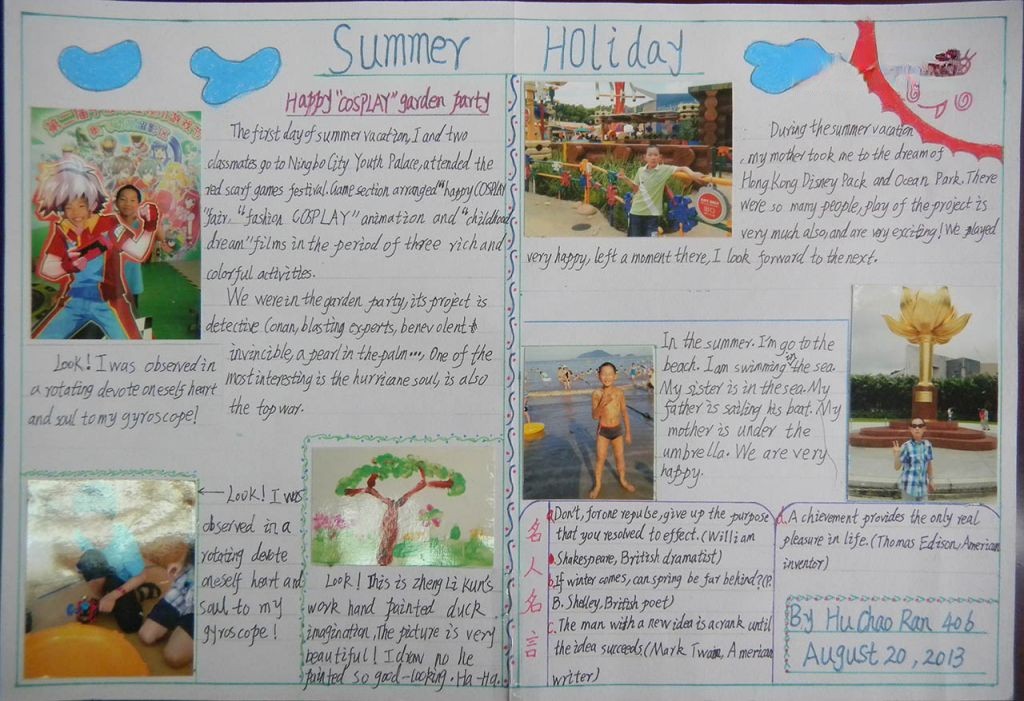 Summer Holiday
Happy "COSPLAY" garden party
The first day of summer vacation, I and two
classmates go to Ningbo City Youth Palace, attended the
red scarf games festival. Camp section arranged "happy COSPLAY
"fair, "fashion COSPLAY" animation and "childhood
dream" films in the period of three rich and
colorful activities.
We were in the garden party, its project is
detective Conan, blasting experts, benevolent
invincible, a pearl in the palm..., One of the
most interesting is the hurricane soul, is also
the top war.
Look! I was observed in
a rotating devote oneself heart
and soul to my gyroscope!
Look! I was
observed in a
rotating devote
oneself heart and
soul to my
gyroscope!
Look! This is zheng Li kun's
work hand painted duck
imagination, The picture is very
beautiful! I draw no he
painted so good-looking. Ha-Ha.
During the summer vacation
, my mother took me to the dream of
Hong Kong Disney Pack and Ocean Park. There
were so many people, play of the project is
very much also, and are very exciting! We played
very happy, left a moment there, I look forward to the next.
In the summer. I'm go to the
beach. I am swimming in the sea.
My sister is in the sea. My
father is sailing his boat. My
mother is under the
umbrella. We are very
happy.
名人名言
a. Don't, for one repulse, give up the purpose
that you resolved to effect. (William
Shakespeare, British dramatist)
b. If winter comes, can spring be far behind? (P.
B. Shelley, British poet)
c. The man with a new idea is a crank until
the idea succeeds. (Mark Twain, American
writer)
d. A chievement provides the only real
pleasure in life. (Thomas Edison, American
inventor)
By Hu Chao Ran 406
August 20, 2013